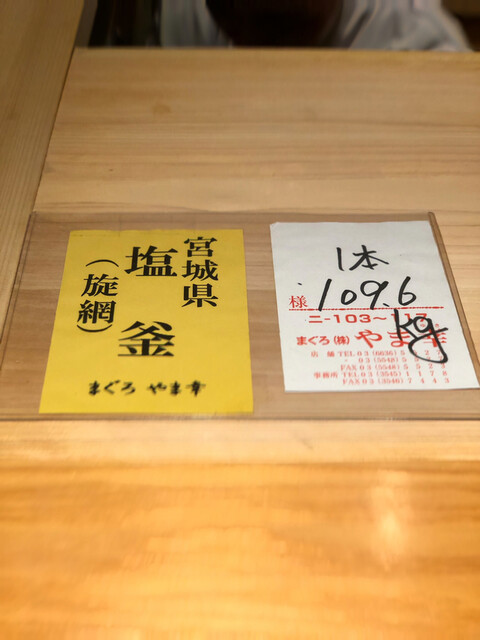 宮城県
塩釜
（旋網）
まぐろ やま幸
1本
様 109.6
kg
ニ-103~117
まぐろ (株) やま幸
店舗 TEL 03 (6636) 5
03 (5548) 5
FAX 03 (5548) 5 5 2 3
事務所 TEL 03 (3545) 1 1 7 8
FAX 03 (3546) 7 4 4 3